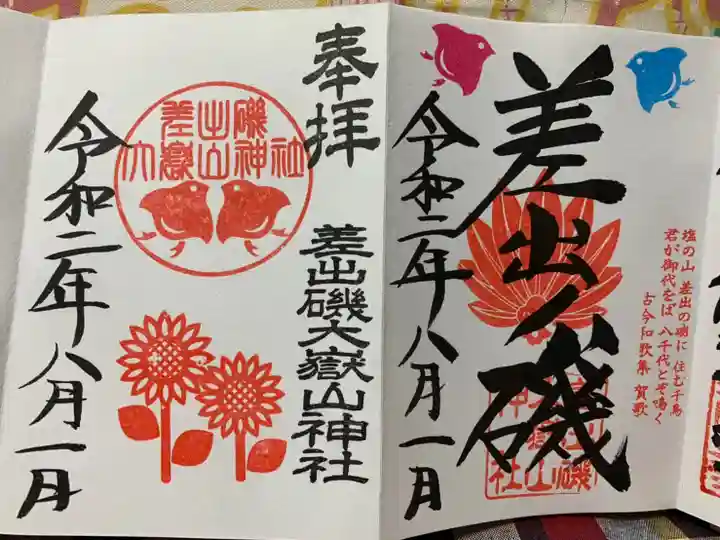 奉拝
差出磯大嶽山神社
差出磯
大嶽山神社
令和二年八月一日
塩の山 差出の磯に 住む千鳥
君が御代をば 八千代とぞ鳴く
古今和歌集 賀歌
差出ノ磯
令和二年八月一日